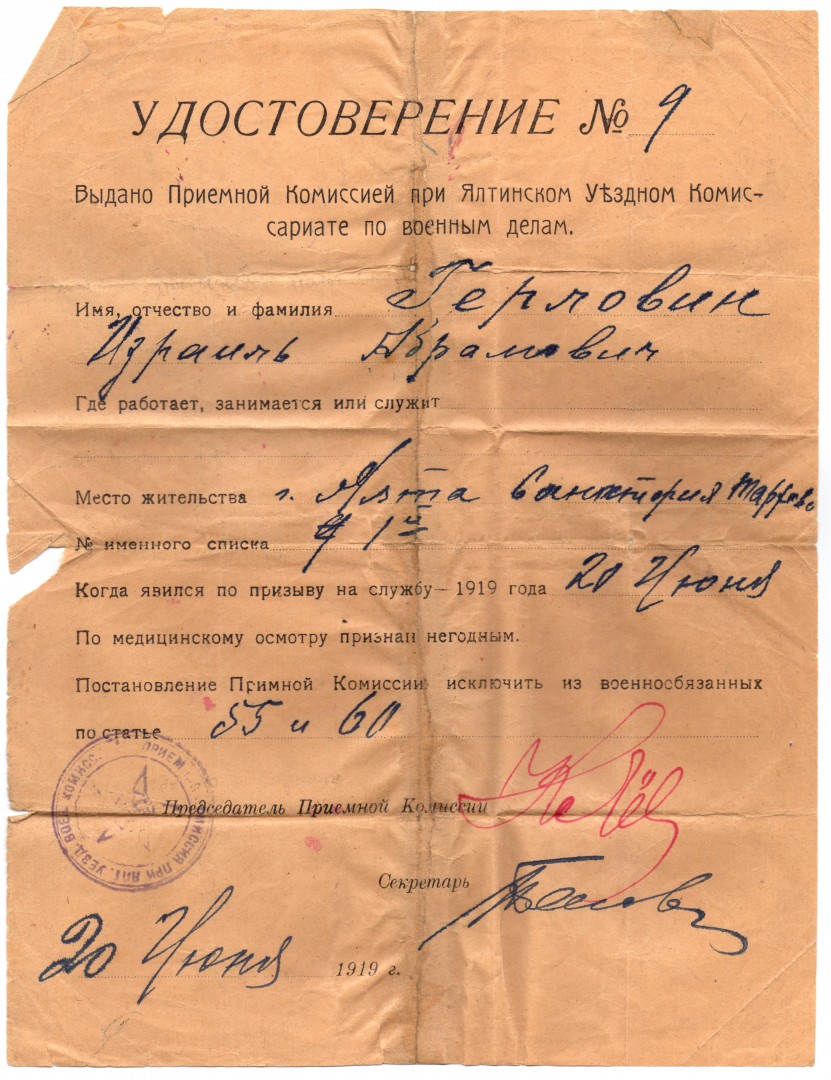 УДОСТОВЕРЕНИЕ № 9
Выдано Приемной Комиссией при Ялтинском Уѣздном Комис-
сариате по военным делам.
Имя, отчество и фамилия Герловин
Израиль Абрамович
Где работает, занимается или служит
Место жительства г. Ялта Санатория
№ именного списка 1й
Когда явился по призыву на службу — 1919 года 20 Июня
По медицинскому осмотру признан негодным.
Постановление Примной Комиссии исключить из военносбязанных
по статье 55 и 60
ПРИЕМ КОМИССИЯ ПРИ ЯЛТ. УЕЗД. ВОЕН. КОМИСС.
Председатель Приемной Комиссии
Секретарь
20 Июня 1919 г.